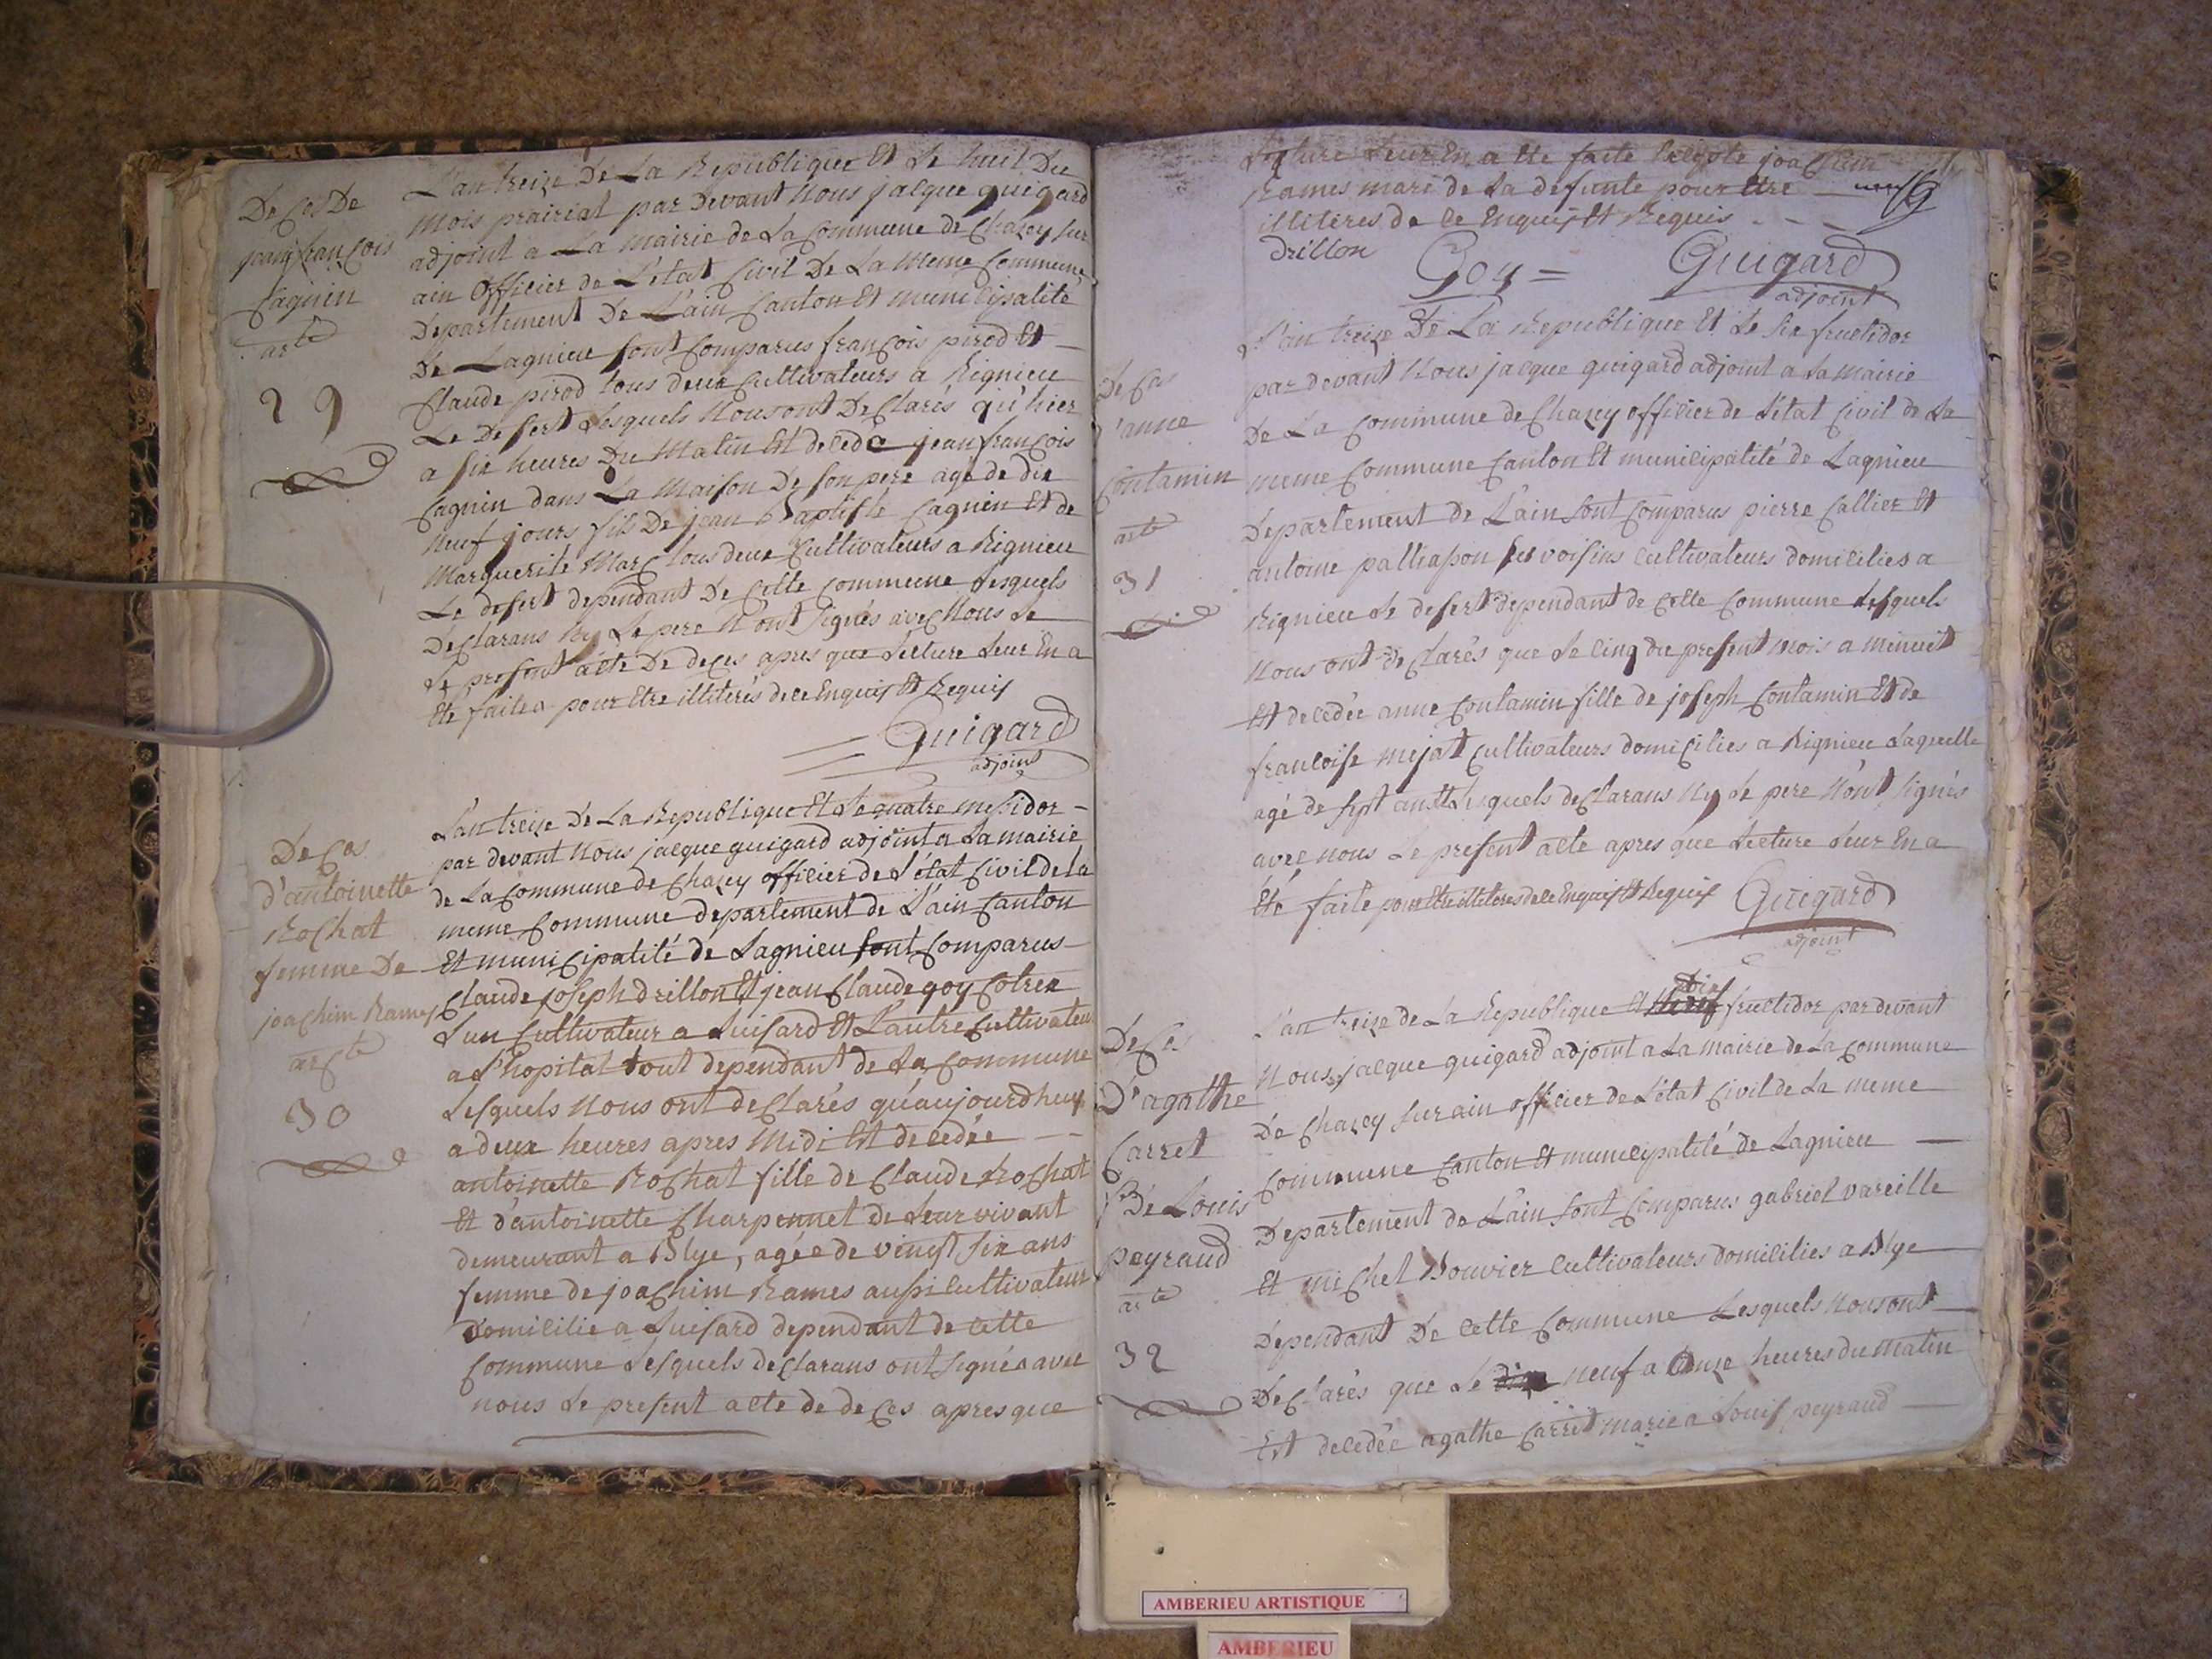 De Ces De
jean françois
Cagnin
arte
29
L'an treize De La Republique Et Le huit Du
mois prairial par Devant Nous jacque guigard
adjoint a La mairie de La Commune de Chazey sur
ain officier de L'état Civil De La Meme Commune
Departement De L'ain Canton Et municipalité
De Lagnieu sont Comparus françois pirod Et
Claude pirod tous deux Cultivateurs a Rignieu
Le Desert Lesquels Nous ont Declarés qu'hier
a six heures Du Matin Est decedé jean françois
Cagnin dans La Maison De son pere agé de dix
neuf jours fils De jean Baptiste Cagnin Et de
Marguerite Marc tous deux Cultivateurs a Rignieu
Le desert dependant De Cette Commune Lesquels
Declarans Ny Le pere N'ont signés avec Nous Le
Le present acte De deces apres que Lecture Leur En a
Eté faite pour Etre illiterés de ce Enquis Et Requis
Guigard
adjoint
De Ces
d'antoinette
Rochat
femme De
joachim Rames
arcte
30
L'an treize De La Republique Et Le quatre messidor
par devant Nous jacque guigard adjoint a La mairie
de La Commune de Chazey officier de L'état Civil de La
meme Commune departement de L'ain Canton
Et municipalité de Lagnieu sont Comparus
Claude joseph drillon Et jean Claude goy Cotrex
L'un Cultivateur a Luisard Et L'autre Cultivateur
a L'hopital tout dependant de La Commune
Lesquels Nous ont declarés qu'aujourdhuy
a deux heures apres Midi Est decedée
antoinette Rochat fille de Claude Rochat
Et d'antoinette Charpennet de Leur vivant
demeurant a Blye, agée de vingt six ans
femme de joachim Rames aussi Cultivateur
Domicilié a Luisard dependant de Cette
Commune Lesquels declarans ont signés avec
nous Le present acte de deces apres que
Lecture Leur En a Ete faite Excepte joachim
Rames mari de La defunte pour Etre
illiteres de Ce Enquis Et Requis
drillon Goy Guigard
adjoint
De Ces
d'anne
Contamin
arte
31
L'an treize De La Republique Et Le six fructidor
par devant Nous jacque guigard adjoint a La Mairie
De La Commune de Chazey officier de L'état Civil de La
meme Commune Canton Et municipalité de Lagnieu
Departement de L'ain sont Comparus pierre Callier Et
antoine palliasson ses voisins cultivateurs domiciliés a
Rignieu Le desert dependant de Cette Commune Lesquels
Nous ont declarés que Le Cinq du present mois a minuit
Est decedée anne Contamin fille de joseph Contamin Et de
francoise mejat Cultivateurs domiciliés a Rignieu Laquelle
agé de sept ans Lesquels declarans Ny Le pere N'ont signés
avec nous Le present acte apres que Lecture Leur En a
Eté faite pour Etre illiteres de Ce Enquis Et Requis Guigard
adjoint
De Ces
D'agathe
Carret
De Louis
peyraud
arte
32
dix
L'an treize de La Republique Et fructidor par devant
Nous jacque guigard adjoint a La mairie de La Commune
De Chazey sur ain officier de L'état Civil de La meme
Commune Canton Et municipalité de Lagnieu
Departement de L'ain sont Comparus gabriel vareille
Et michel Bouvier Cultivateurs domiciliés a Blye
Dependant De Cette Commune Lesquels Nous ont
Declarés que Le neuf a Onze heures du Matin
Est decedée agathe Carret mariée a Louis peyraud
AMBERIEU ARTISTIQUE
AMBERIEU